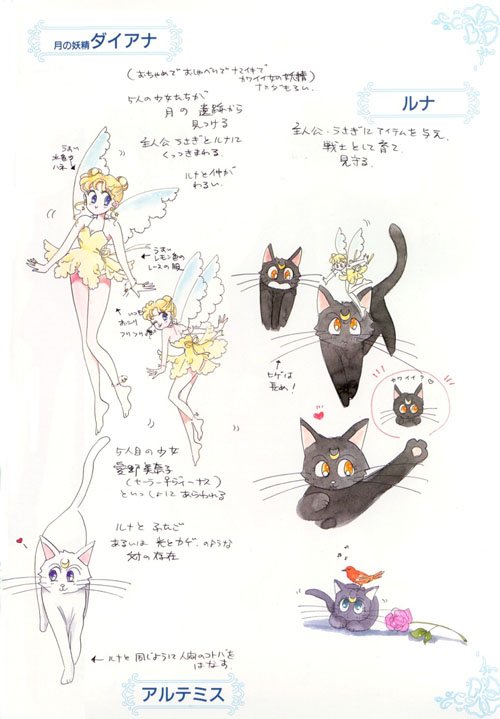 月の妖精 ダイアナ
(おちゃめで おしゃべりで ナマイキで
カワイイ女の妖精)
5人の少女たちが
月の 遺跡から
見つける
主人公 うさぎとルナに
くっつきまわる
ルナと仲が
わるい
うすい
水色の
ハネ
うすい
レモン色の
レースの服
いつも
フリフリ
ルナ
主人公:うさぎに アイテムを 与え、
戦士として 育て、
見守る。
ヒゲは
長め!
カワイイっ
5人目の少女
愛野美奈子
(セーラーヴィーナス)
といっしょに あらわれる
ルナと ふたご
あるいは 光とカゲ、のような
対の存在
←ルナと 同じように 人間のコトバを
はなす
アルテミス